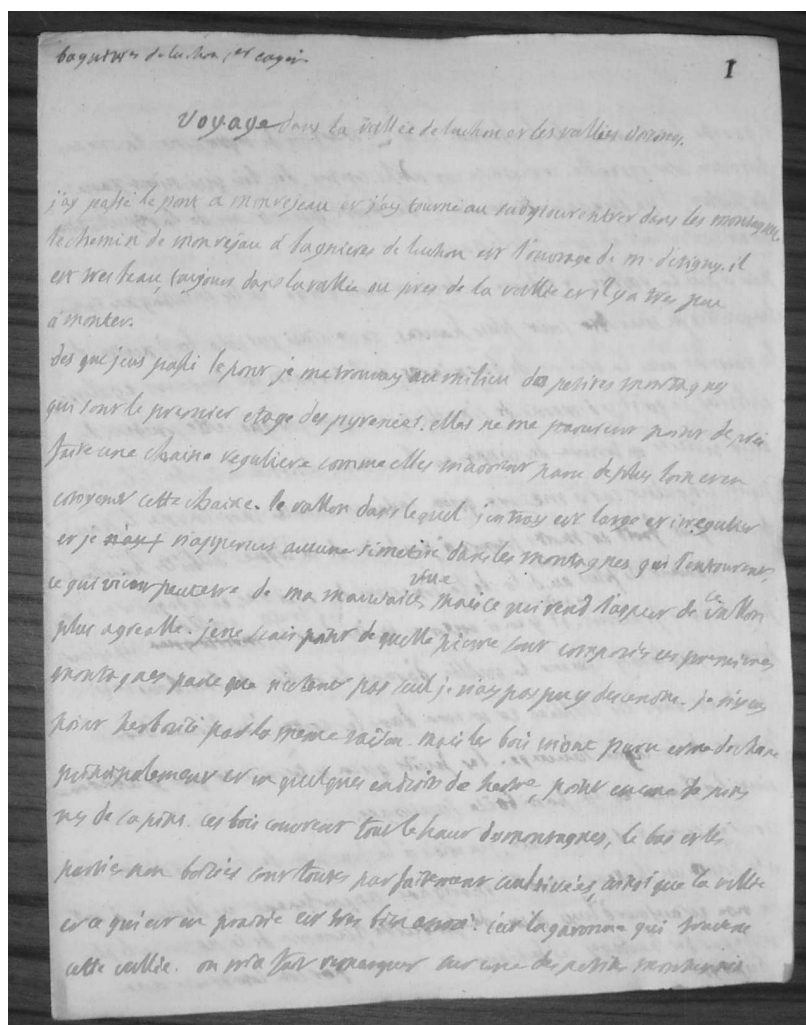 bagneres de luchon 1er cayer
1
Voyage dans la vallée de luchon et les vallées voisines.
j'ay passé le pont a monrejeau et j'ay tourné au sud pour entrer dans les montagnes.
le chemin de monrejau a bagnieres de luchon est l'ouvrage de m. detigny. il
est tres beau, toujours dans la vallée ou pres de la vallée et il y a tres peu
a monter.
des que j'eus passé le pont je me trouvay au milieu de petites montagnes
qui sont le premier etage des pyrenées. elles ne me parurent point de près
faire une chaine reguliere comme elles m'avoient paru de plus loin et en
cette chaine. le vallon dans lequel j'entray est large et irregulier
et je n'apperceus aucune simetrie dans les montagnes qui l'entourent,
ce qui vient peutetre de ma mauvaise vüe mais ce qui rend l'aspect de ce vallon
plus agreable. je ne scais point de quelle pierre sont composés ces premieres
montagnes parce que n'etant pas seul je n'ay pas pu y descendre. je n'ay
point herborisé par la meme raison. mais les bois m'ont paru etre de chene
principalement et en quelques endroits de hestre, point encore de pins
ny de sapins. ces bois couvrent tout le haut des montagnes, le bas et les
parties non boisées sont toutes parfaitement cultivées, ainsi que la vallée
et ce qui est en prairie est tres bien arrosé. c'est la garonne qui traverse
cette vallée. on m'a fait remarquer sur une des petites